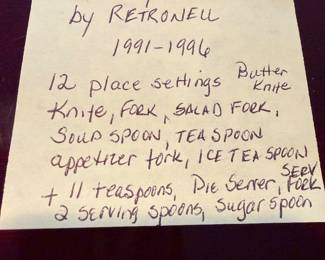 by RETRONELL
1991-1996
12 place settings Butter Knife
Knife, FORK, SALAD FORK,
SOUP SPOON, TEA SPOON
appetizer fork, ICE TEA SPOON
+ 11 teaspoons, Pie Server, SERV FORK
2 serving spoons, Sugar spoon